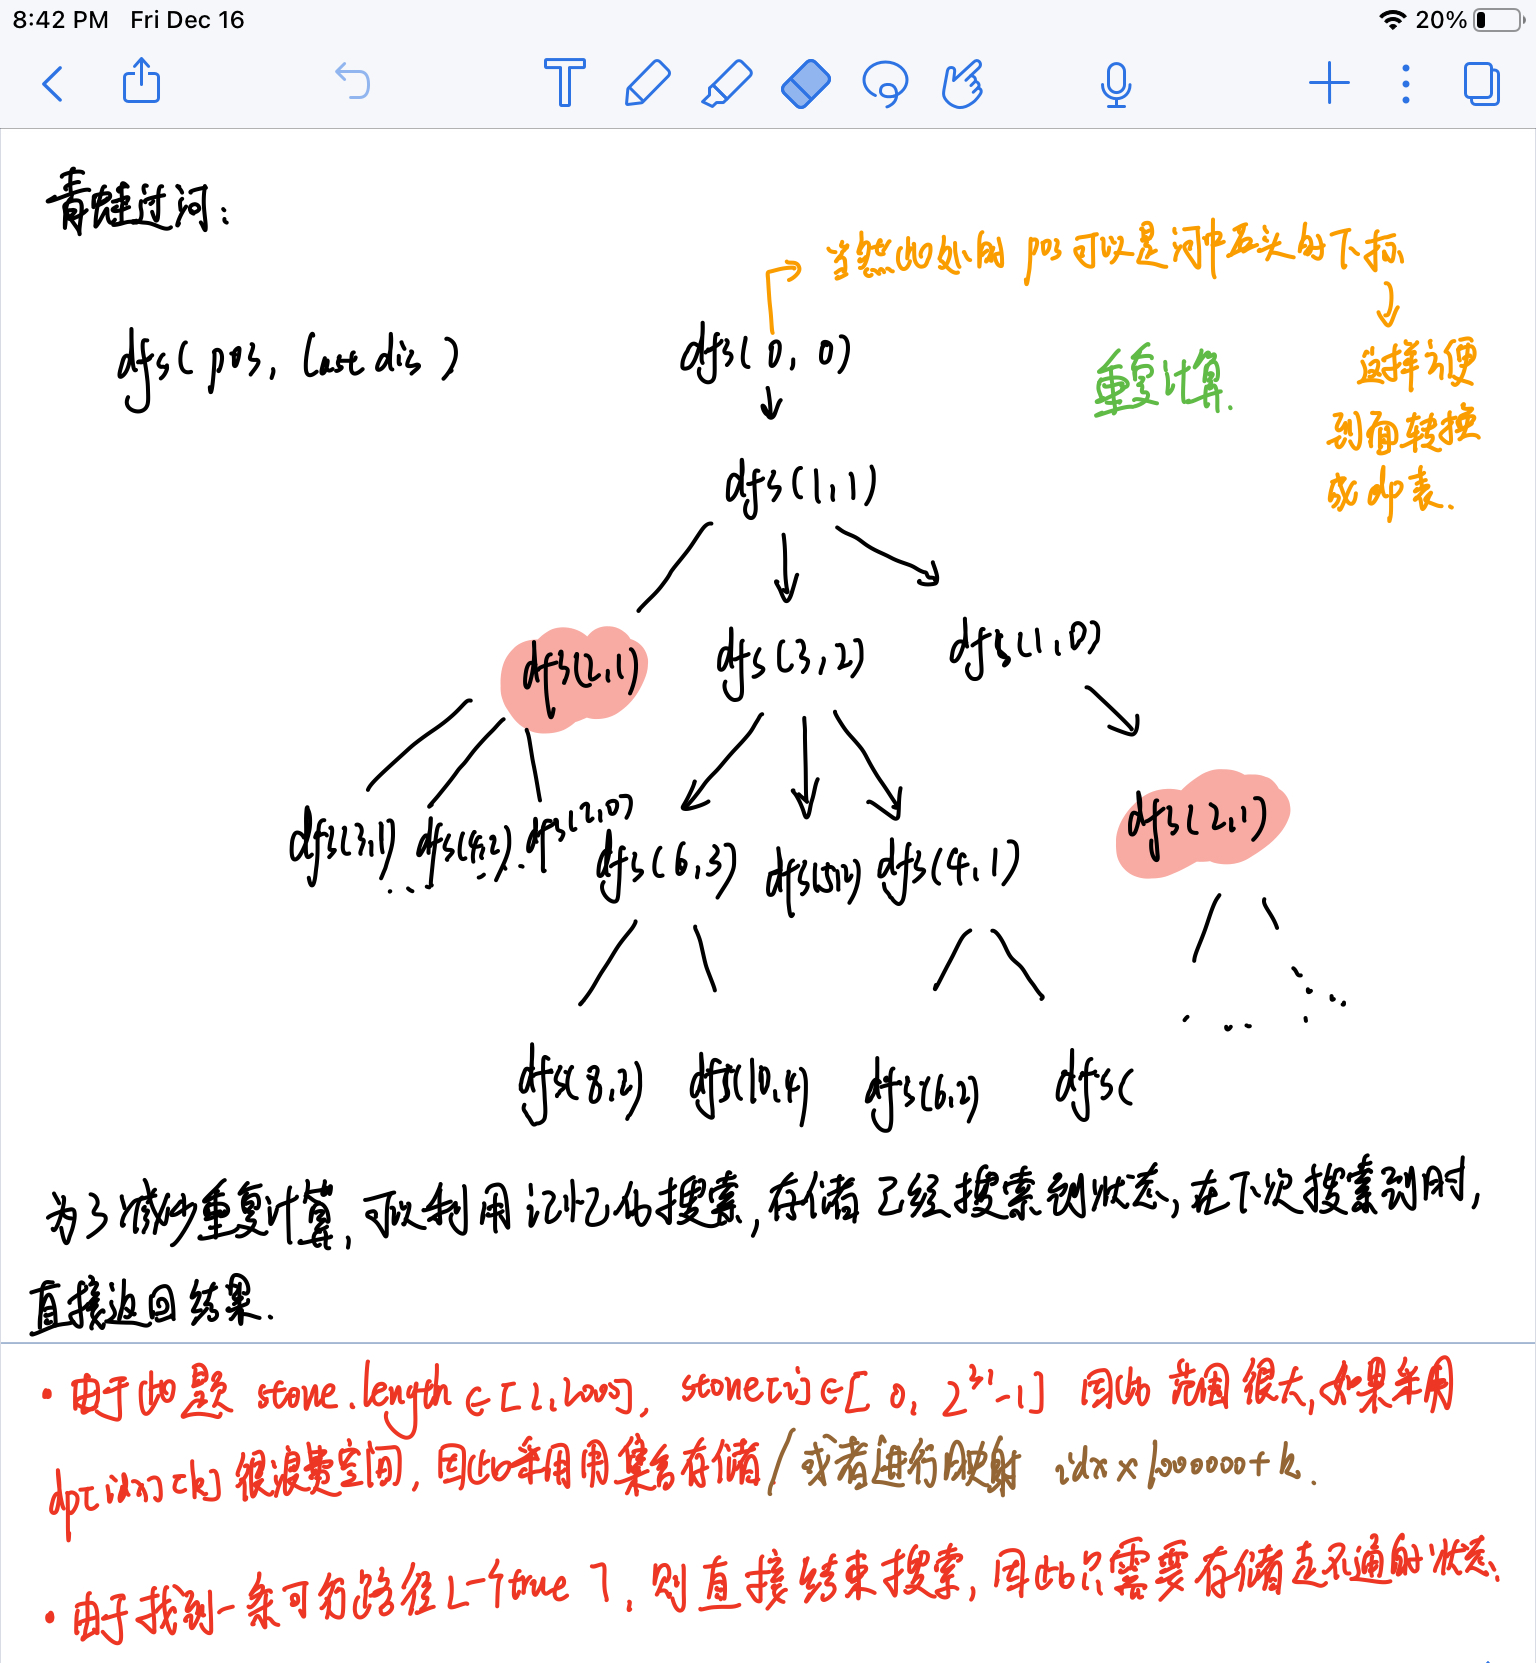 8:42 PM Fri Dec 16
20%
青蛙过河:
当然此处的 pos 可以是河中石头的下标
dfs( pos, last dis )
dfs( 0, 0)
重复计算.
这样方便
到面转换
成 dp表.
dfs(1,1)
dfs(2,1)
dfs(3,2)
dfs(1,0)
dfs(3,1)
dfs(4,2)
dfs(2,0)
dfs(6,3)
dfs(5,2)
dfs(4,1)
dfs(2,1)
dfs(8,2)
dfs(10,4)
dfs(6,2)
dfs(
为了减少重复计算, 可以利用记忆化搜索, 存储已经搜索到状态, 在下次搜索到时,
直接返回结果.
· 由于此题 stone.length ∈ [2,2000], stone[i] ∈ [ 0, 2^31-1] 因此范围很大, 如果采用
dp[idx][k] 很浪费空间, 因此采用用集合存储 / 或者进行映射 idx × 1000000 + k.
· 由于找到一条可行路径 [一个true], 则直接结束搜索, 因此只需要存储走不通的状态.